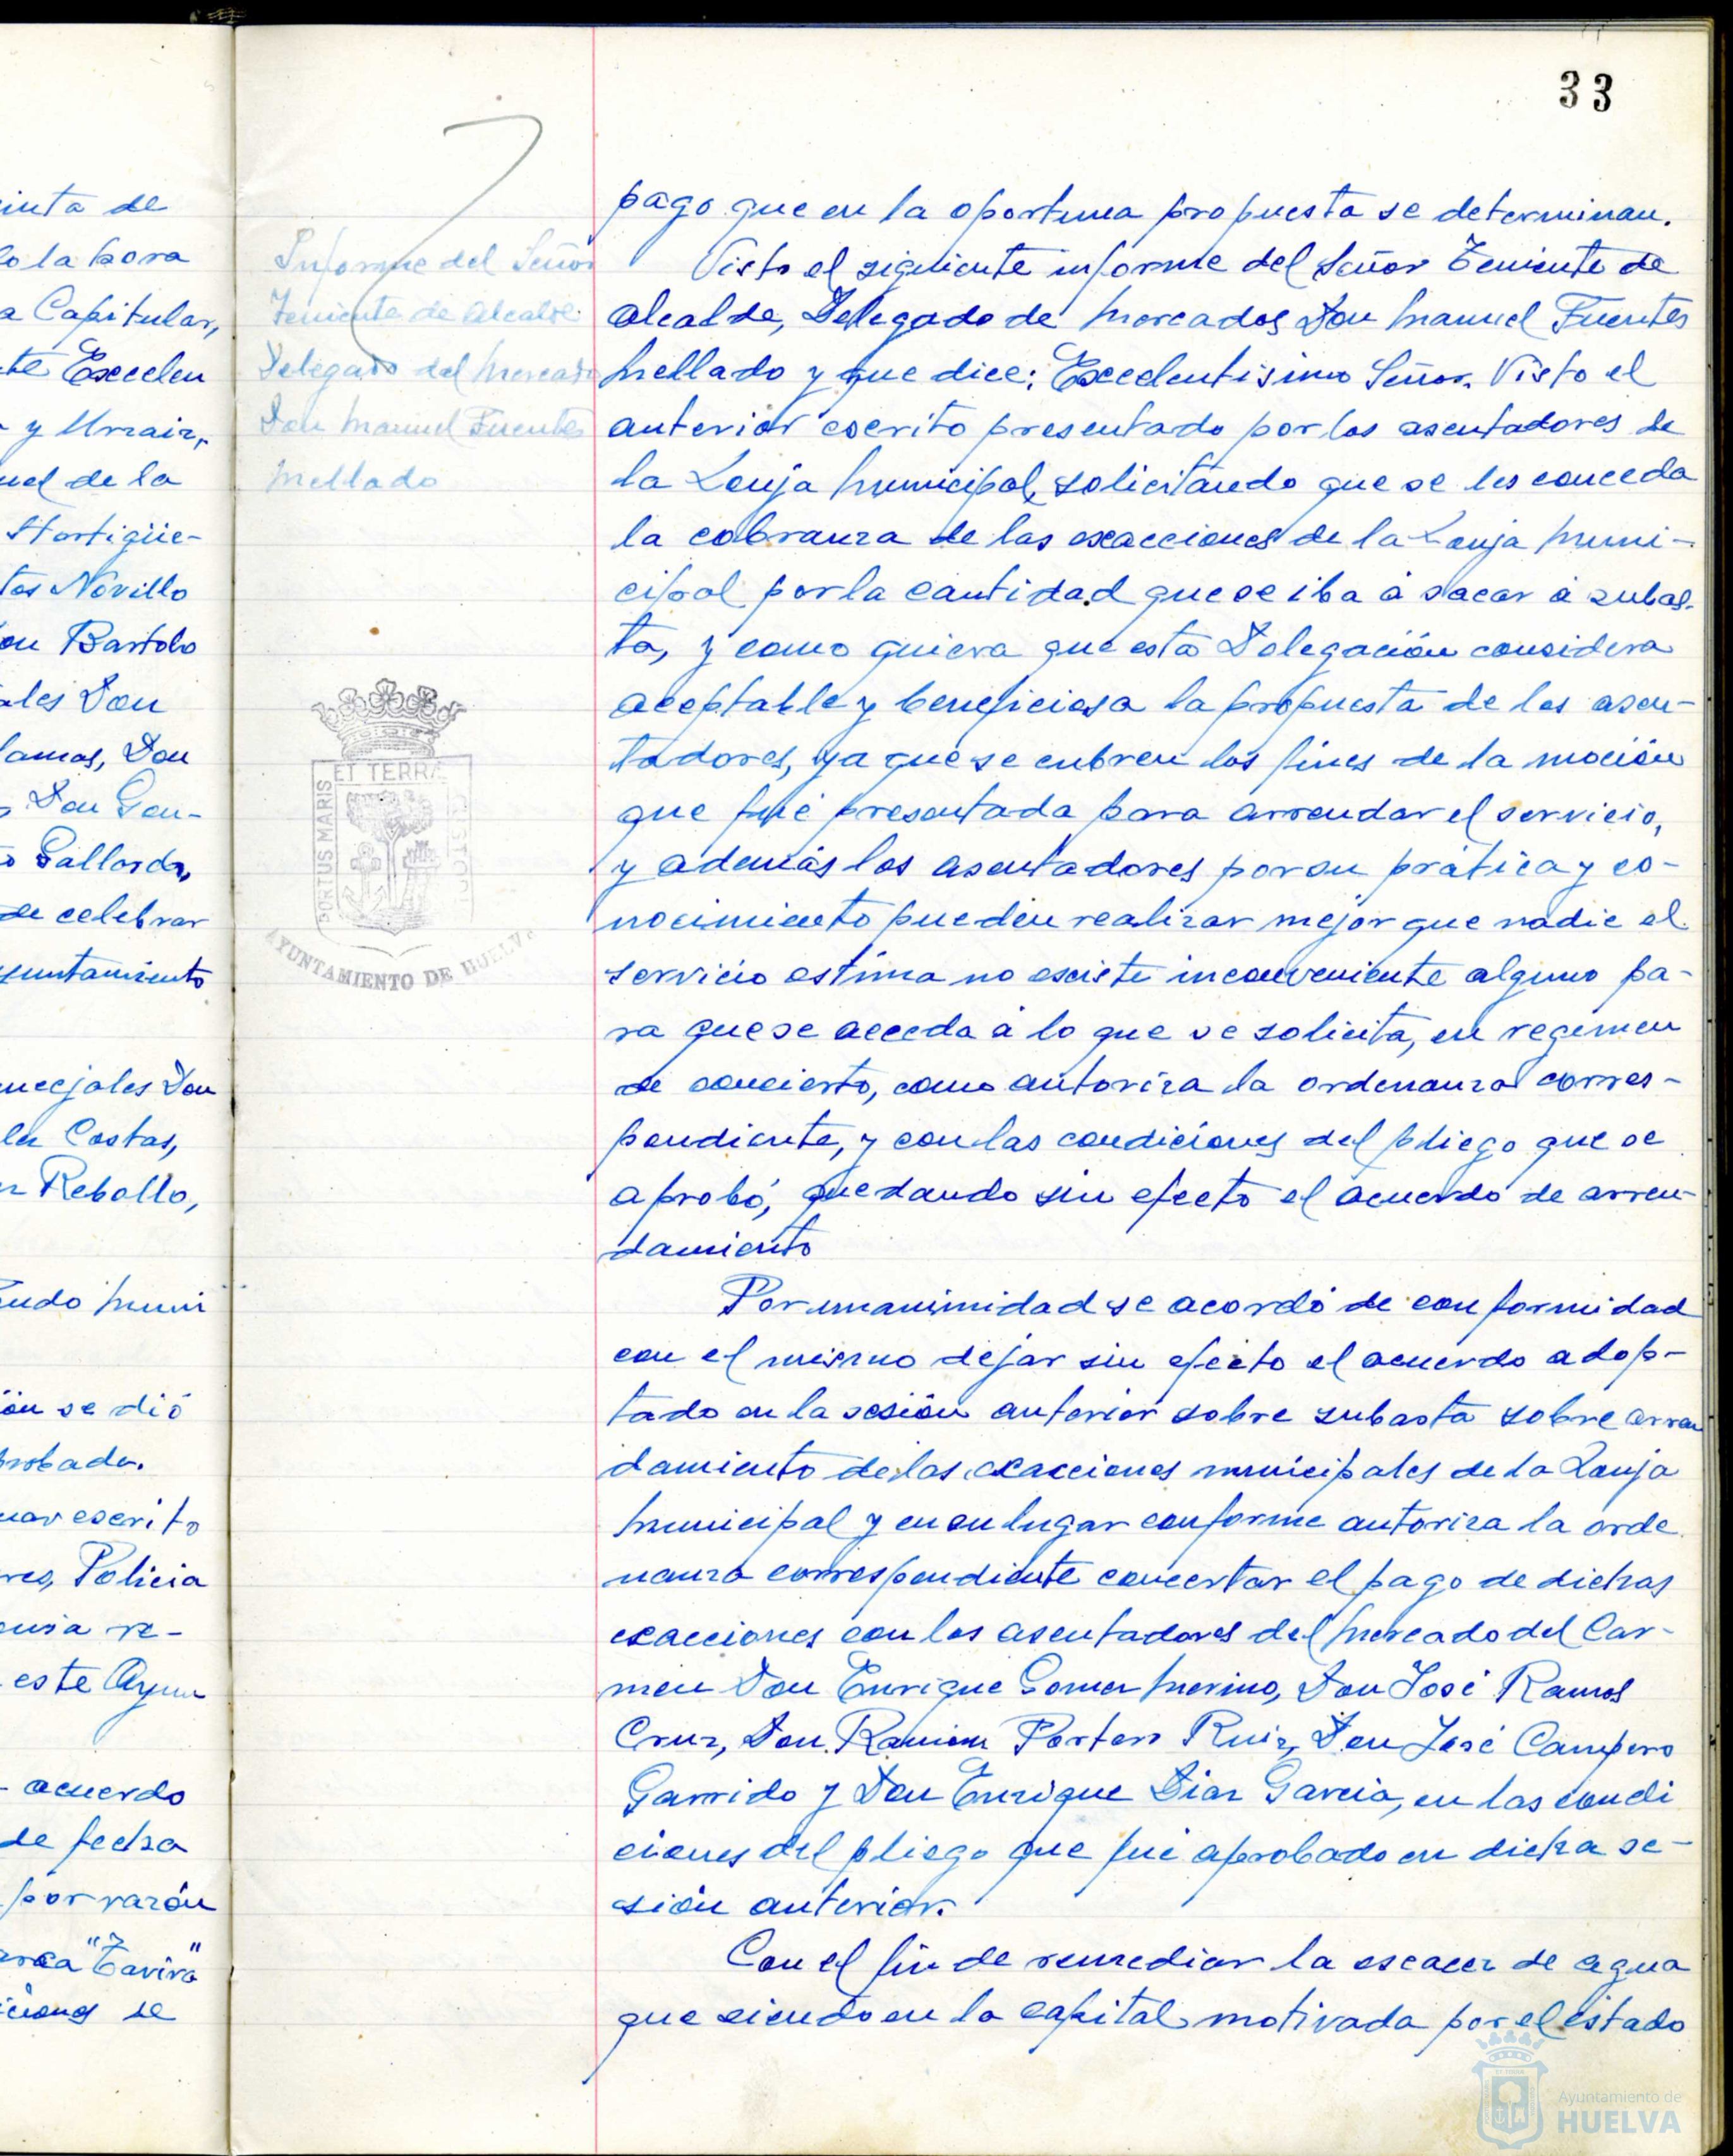 33
inta de
lo la hora
a Capitular,
te Excelen
y Urzaiz,
uel de la
Hortigüe-
tos Novillo
on Bartolo
ales Don
lamas, Don
Don Gon-
Gallardo,
de celebrar
yuntamiento
ncejales Don
la Costas,
Rebollo,
undo muni
ión se dió
probada.
escrito
res, Policia
re-
este Ayun
acuerdo
de fecha
por razón
arca "Tavira"
ciones se
Informe del Señor
Teniente de Alcalde
Delegado del Mercado
Don Manuel Fuentes
Mellado
ET TERRÆ
PORTUS MARIS
CUSTODIA
AYUNTAMIENTO DE HUELVA
pago que en la oportuna propuesta se determinan.
Visto el siguiente informe del Señor Teniente de
Alcalde, Delegado de Mercados Don Manuel Fuentes
Mellado y que dice: Excelentisimo Señor. Visto el
anterior escrito presentado por los asentadores de
la Lonja Municipal, solicitando que se les conceda
la cobranza de las exacciones de la Lonja Muni-
cipal por la cantidad que se iba á sacar á subas-
ta, y como quiera que esta Delegación considera
aceptable y beneficiosa la propuesta de los asen-
tadores, ya que se cubren los fines de la moción
que fué presentada para arrendar el servicio,
y además los asentadores por su prática y co-
nocimiento pueden realizar mejor que nadie el
servicio estima no existe inconveniente alguno pa-
ra que se acceda á lo que se solicita, en regimen
de concierto, como autoriza la ordenanza corres-
pondiente, y con las condiciones del pliego que se
aprobó, quedando sin efecto el acuerdo de arren-
damiento
Por unanimidad se acordó de conformidad
con el mismo dejar sin efecto el acuerdo adop-
tado en la sesión anterior sobre subasta sobre arren
damiento de las exacciones municipales de la Lonja
Municipal y en su lugar conforme autoriza la orde
nanza correspondiente concertar el pago de dichas
exacciones con los asentadores del Mercado del Car-
men Don Enrique Gomez Merino, Don José Ramos
Cruz, Don Ramón Portero Ruiz, Don José Campero
Garrido y Don Enrique Diaz Garcia, en las condi
ciones del pliego que fué aprobado en dicha se-
sión anterior.
Con el fin de remediar la escacez de agua
que siendo en la capital motivada por el estado
Ayuntamiento de
HUELVA